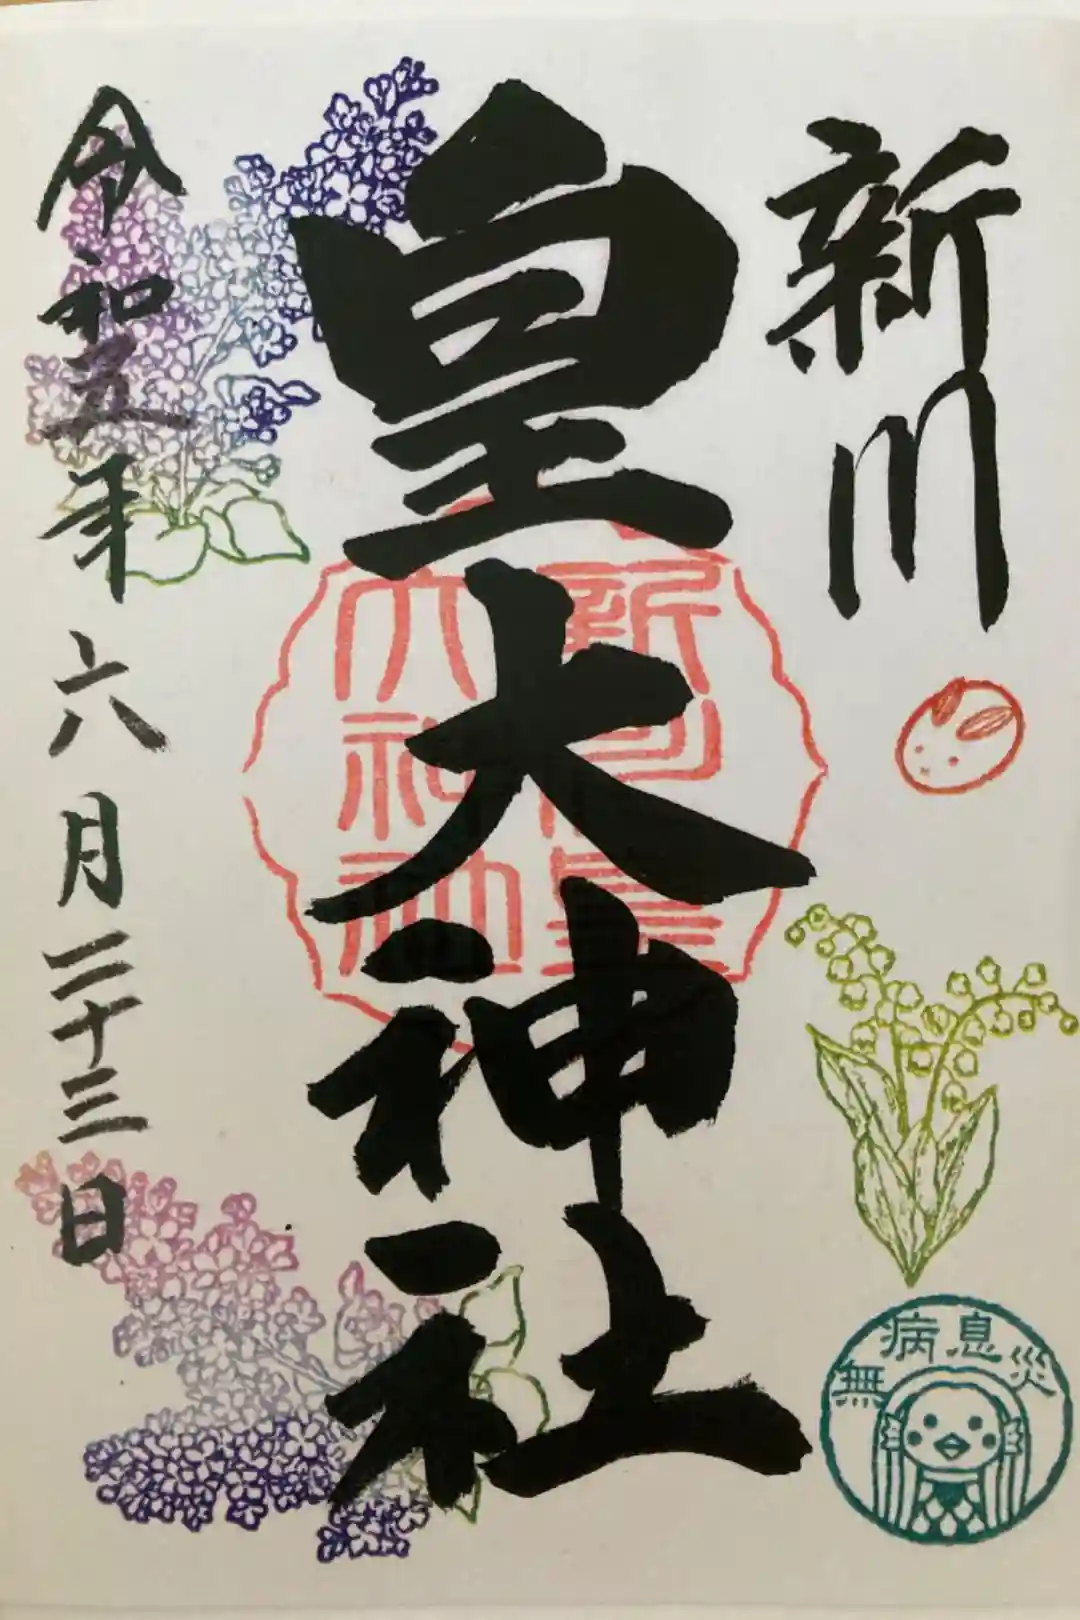 新川
皇大神社
令和五年六月二十三日
新川皇
大神社神
無病息災